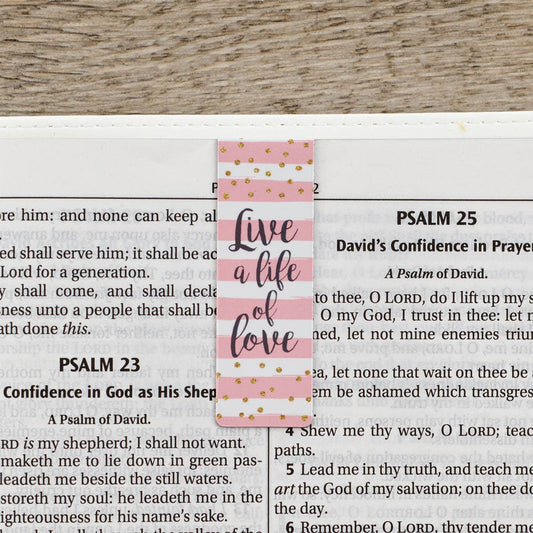 P 2
ore him: and none can keep al
ed shall serve him; it shall be ac
Lord for a generation.
y shall come, and shall decla
sness unto a people that shall b
ath done this.
PSALM 23
Confidence in God as His Shep
A Psalm of David.
RD is my shepherd; I shall not want.
maketh me to lie down in green pas-
leadeth me beside the still waters.
storeth my soul: he leadeth me in the
ighteousness for his name's sake.
Live
a life
of
love
PSALM 25
David's Confidence in Prayer
A Psalm of David.
to thee, O LORD, do I lift up my s
O my God, I trust in thee: let m
let not mine enemies trium
ea, let none that wait on thee be a
em be ashamed which transgres
4 Shew me thy ways, O LORD; teac
paths.
5 Lead me in thy truth, and teach me
art the God of my salvation; on thee do
the day.
6 Remember, O LORD, thy tender me